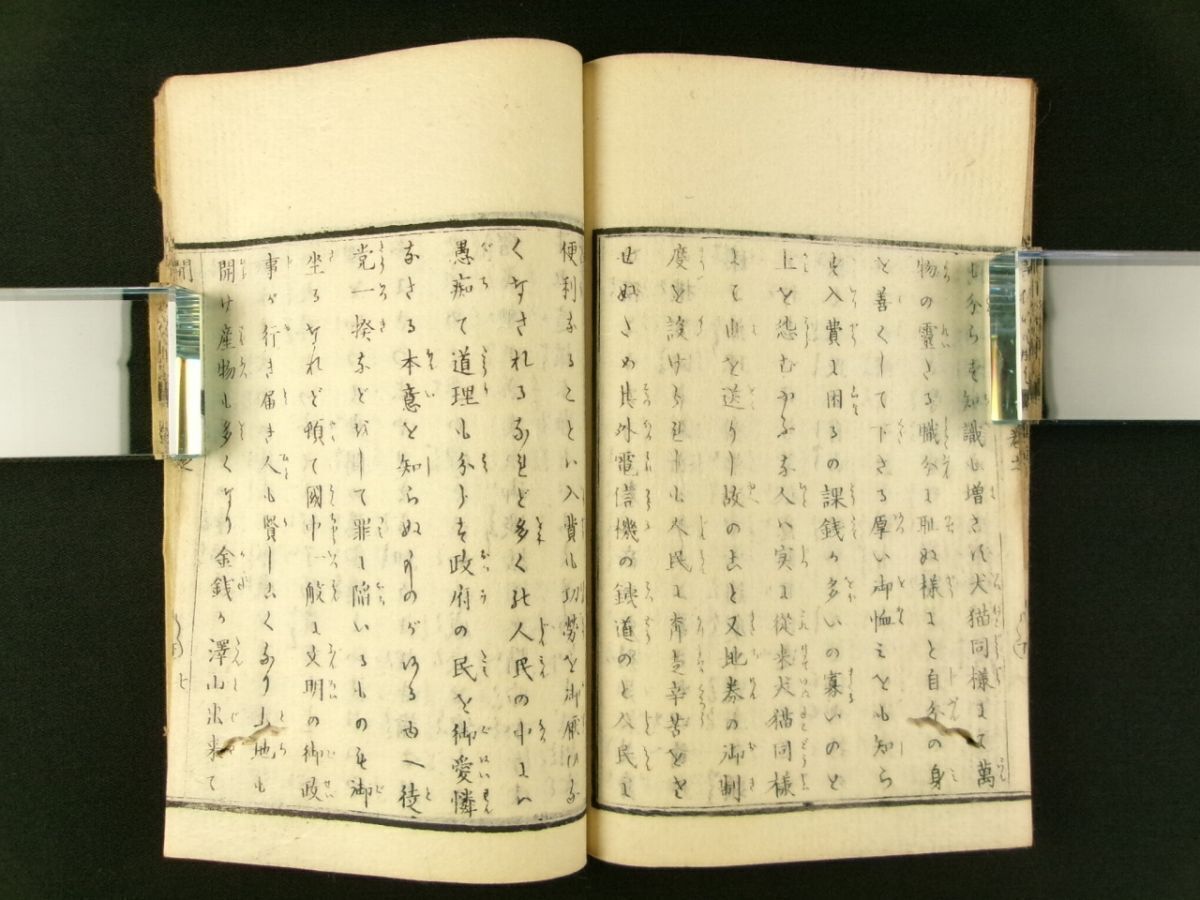 も分らず知識も増さず犬猫同様にて萬
物の霊たる職分に耻ぬ様にと自分の身
を善くして下さる厚い御恤みとも知ら
ず入費に困るの課銭が多いの寡いのと
上を怨むやふな人ハ実に従来犬猫同様
にて山を送りし故のこと又地券の御制
度を設けられしも人民に奔走辛苦をさ
せぬため其外電信機の鉄道のと人民に
便利なることハ入費も功労も御厭ひな
くなされるなれど多くの人民の中にハ
愚痴て道理も分らず政府の民を御愛憐
なさる本意を知らぬものがある由へ徒
党一揆などおこして罪に陥いるもの毛御
坐るなれど頓て國中一般に文明の御政
事が行き届き人も賢しこくなり土地も
開け産物も多くなり金銭が澤山出来て
七